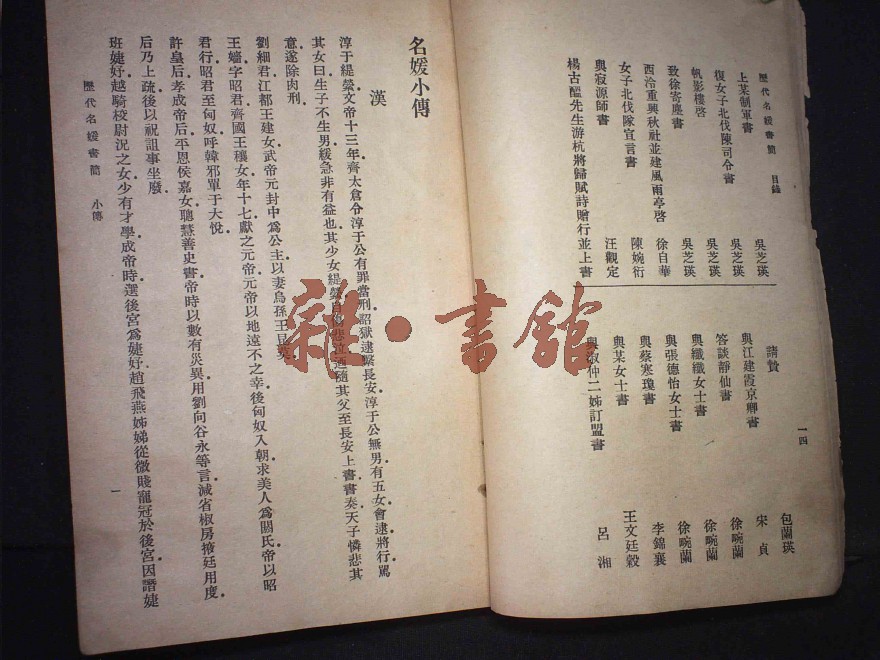 歷代名媛書簡 目錄
上某制軍書 吳芝瑛
復女子北伐陳司令書 吳芝瑛
帆影樓啓 吳芝瑛
致徐寄塵書 吳芝瑛
西泠重興秋社並建風雨亭啓 徐自華
女子北伐隊宣言書 陳婉衍
與寂源師書 汪觀定
楊古醞先生游杭將歸賦詩贈行並上書
一四
包蘭瑛
請贊 宋貞
與江建霞京卿書 徐畹蘭
答談靜仙書 徐畹蘭
與纖纖女士書 徐畹蘭
與張德怡女士書 李錦襄
與蔡寒瓊書 王文廷毅
與某女士書 呂湘
與淑仲二姊訂盟書
名媛小傳
漢
淳于緹縈文帝十三年齊太倉令淳于公有罪當刑詔獄逮繫長安淳于公無男有五女會逮將行駡
其女曰生子不生男緩急非有益也其少女緹縈自傷悲泣迺隨其父至長安上書書奏天子憐悲其
意遂除肉刑
劉細君江都王建女武帝元封中爲公主以妻烏孫王昆莫
王嬙字昭君齊國王穰女年十七獻之元帝元帝以地遠不之幸後匈奴入朝求美人爲閼氏帝以昭
君行昭君至匈奴呼韓邪單于大悅
許皇后孝成帝后平恩侯嘉女聰慧善史書帝時以數有災異用劉向谷永等言減省椒房掖廷用度
后乃上疏後以祝詛事坐廢
班婕妤越騎校尉況之女少有才學成帝時選後宮爲婕妤趙飛燕姊娣從微賤寵冠於後宮因譖婕
歷代名媛書簡 小傳
一
雜·書館